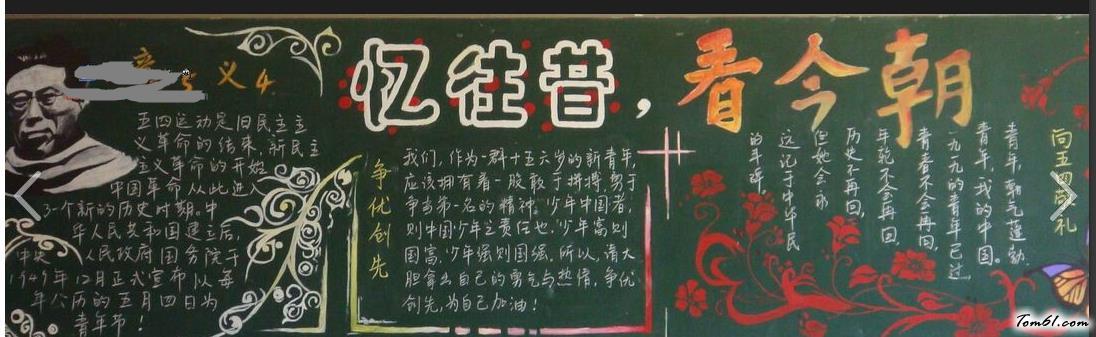 义4
五四运动是旧民主主
义革命的结束,新民主
主义革命的开始,
中国革命从此进入
了一个新的历史时期。中
华人民共和国建立后,
中央人民政府国务院于
1949年12月正式宣布以每
年公历的五月四日为
青年节!
忆往昔,看今朝
争优创先
我们,作为一群十五六岁的新青年,
应该拥有着一股敢于拼搏,勇于
争当第一名的精神。少年中国者,
则中国少年之责任也,少年富则
国富,少年强则国强,所以,请大
胆拿出自己的勇气与热情,争优
创先,为自己加油!
向五四献礼
青年,朝气蓬勃
青年,我的中国。
一九一九的青年已过
青春不会再回,
年轮不会再回
历史不再回,
但她会永
远记于中华民
的年碑。
Tom61.com